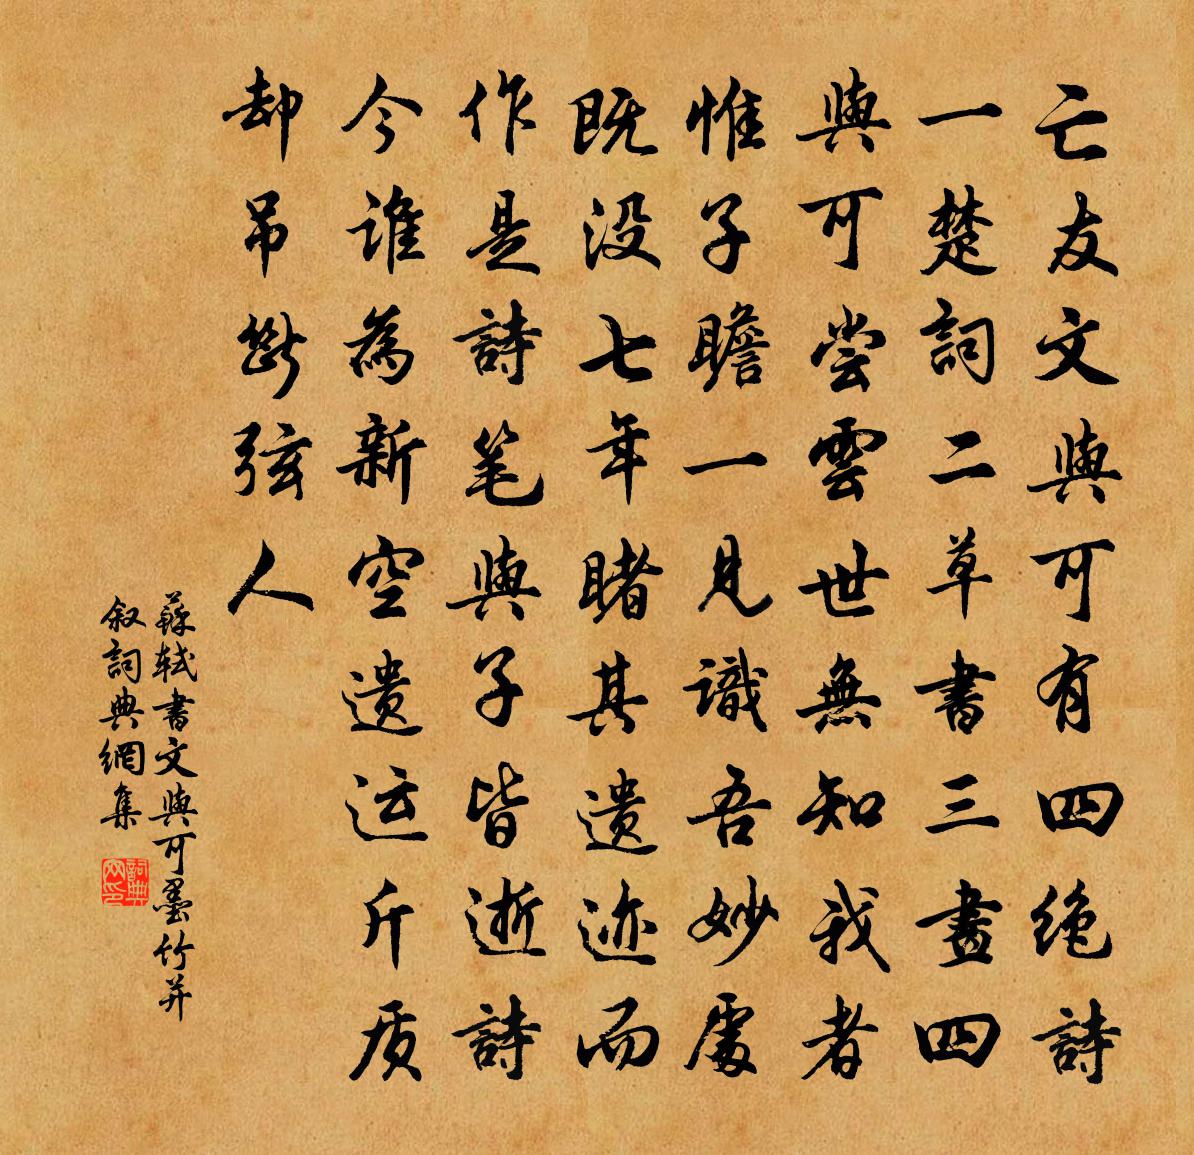 亡友文與可有四絶詩
一楚詞二草書三畫四
與可尝雲世無知我者
惟子瞻一見識吾妙處
既没七年睹其遗迹而
作是詩笔與子皆逝詩
今谁為新空遗运斤质
却吊斷弦人
蘇軾書文與可墨竹并
叙詞典網集
詞典